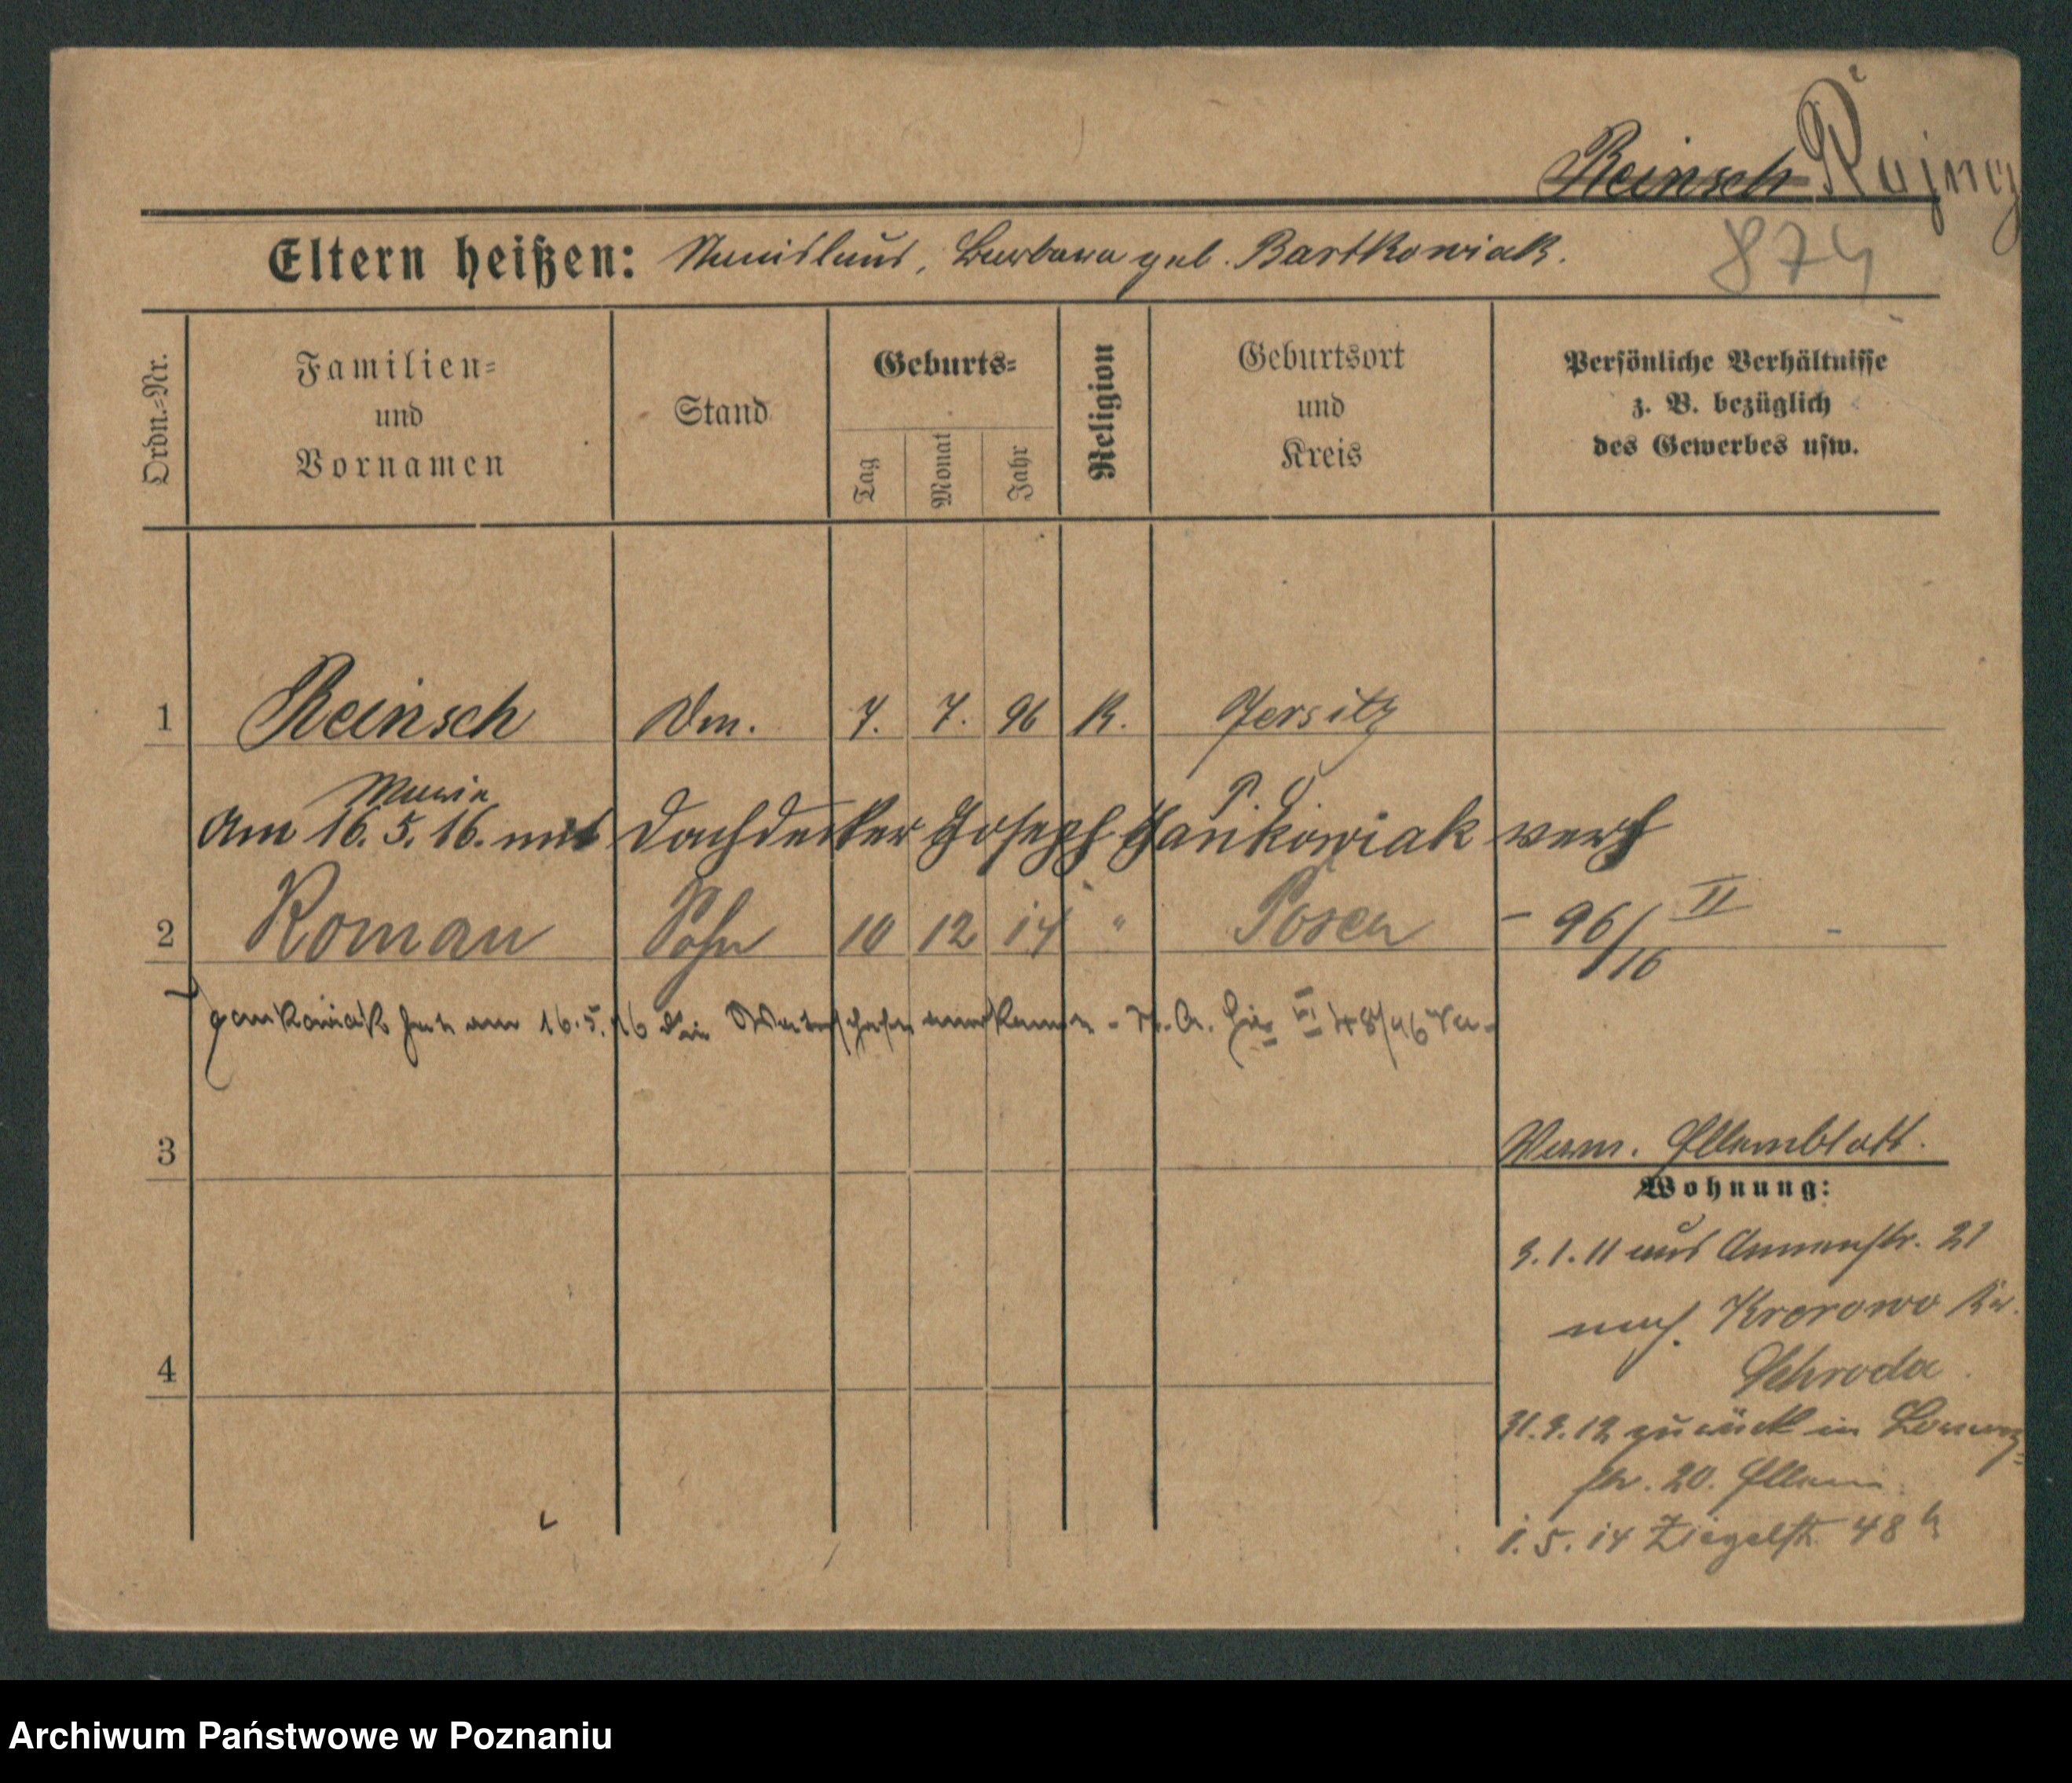 Reinsch Rajny
Eltern heißen: Stanislaus, Barbara geb. Bartkowiak.
874
Ordn.-Nr.
Familien-
und
Vornamen
Stand
Geburts-
Tag
Monat
Jahr
Religion
Geburtsort
und
Kreis
Persönliche Verhältnisse
z. B. bezüglich
des Gewerbes usw.
1 Reinsch 7. 7. 96 K. Jersitz
Maria P.
Am 16. 5. 16. mit Dachdecker Joseph Jankowiak verh
2 Roman Sohn 10 12 14 " Posen – 96/16 II
Jankowiak hat am 16.5.16 die Vaterschaft anerkannt - St. A. hier
3
Verm. Elternblatt.
Wohnung:
3. 1. 11 aus Annenstr. 21
nach Krerowo Kr.
Schroda
4
31. 3. 12 zurück in
str. 20. Eltern
1. 5. 14 Ziegelstr. 48
Archiwum Państwowe w Poznaniu